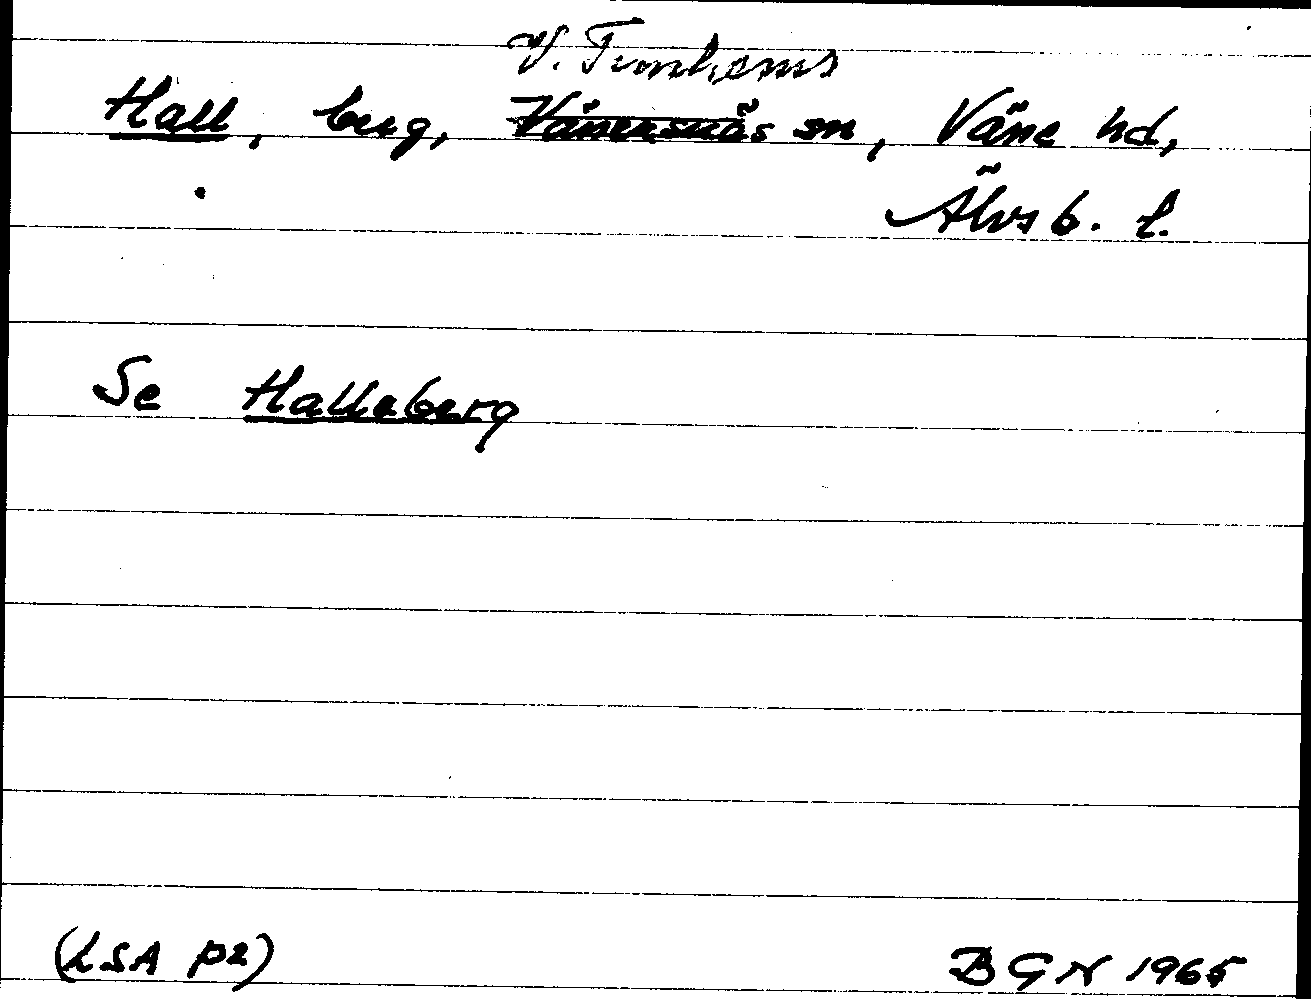 V. Tunhems
Hall, berg, Vänersnäs sn, Väne hd,
Älvsb. l.
Se Halleberg
(LSA P2)
BGN 1965